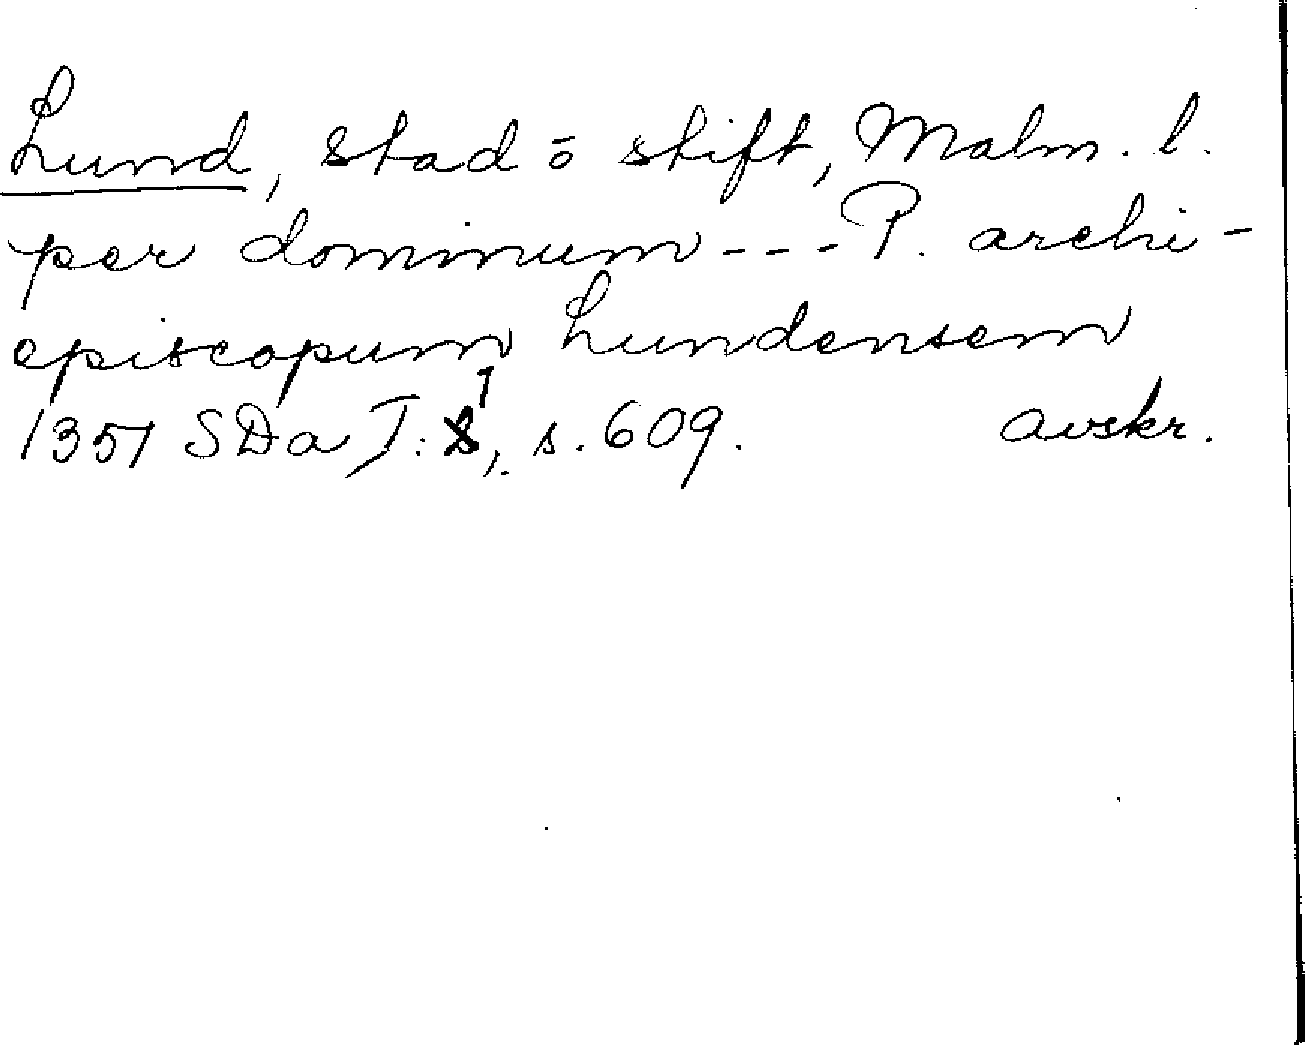 Lund, stad o stift, Malm. l.
per dominum --- P. archi-
episcopum Lundensem
1351 SDa I: 1, s. 609. avskr.